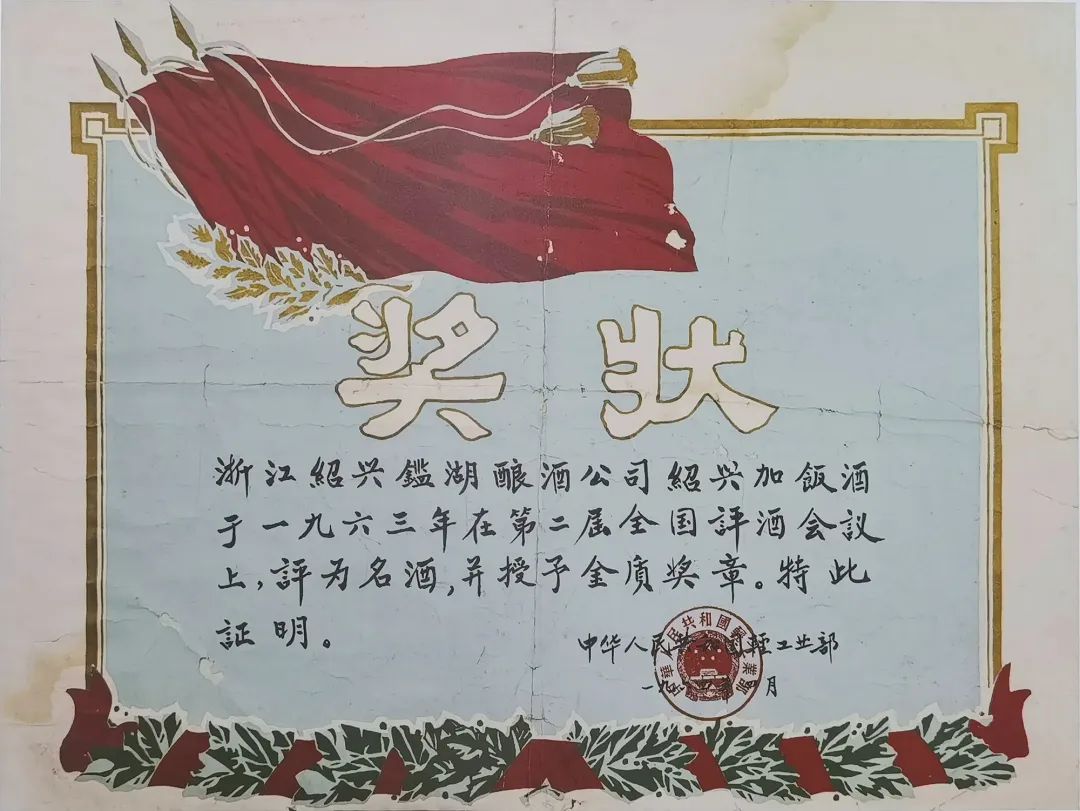 奖状
浙江紹兴鑑湖酿酒公司紹兴加飯酒
于一九六三年在第二届全国評酒会议
上,評为名酒,并授予金质奖章。特此
証明。
中华人民共和国輕工业部
月